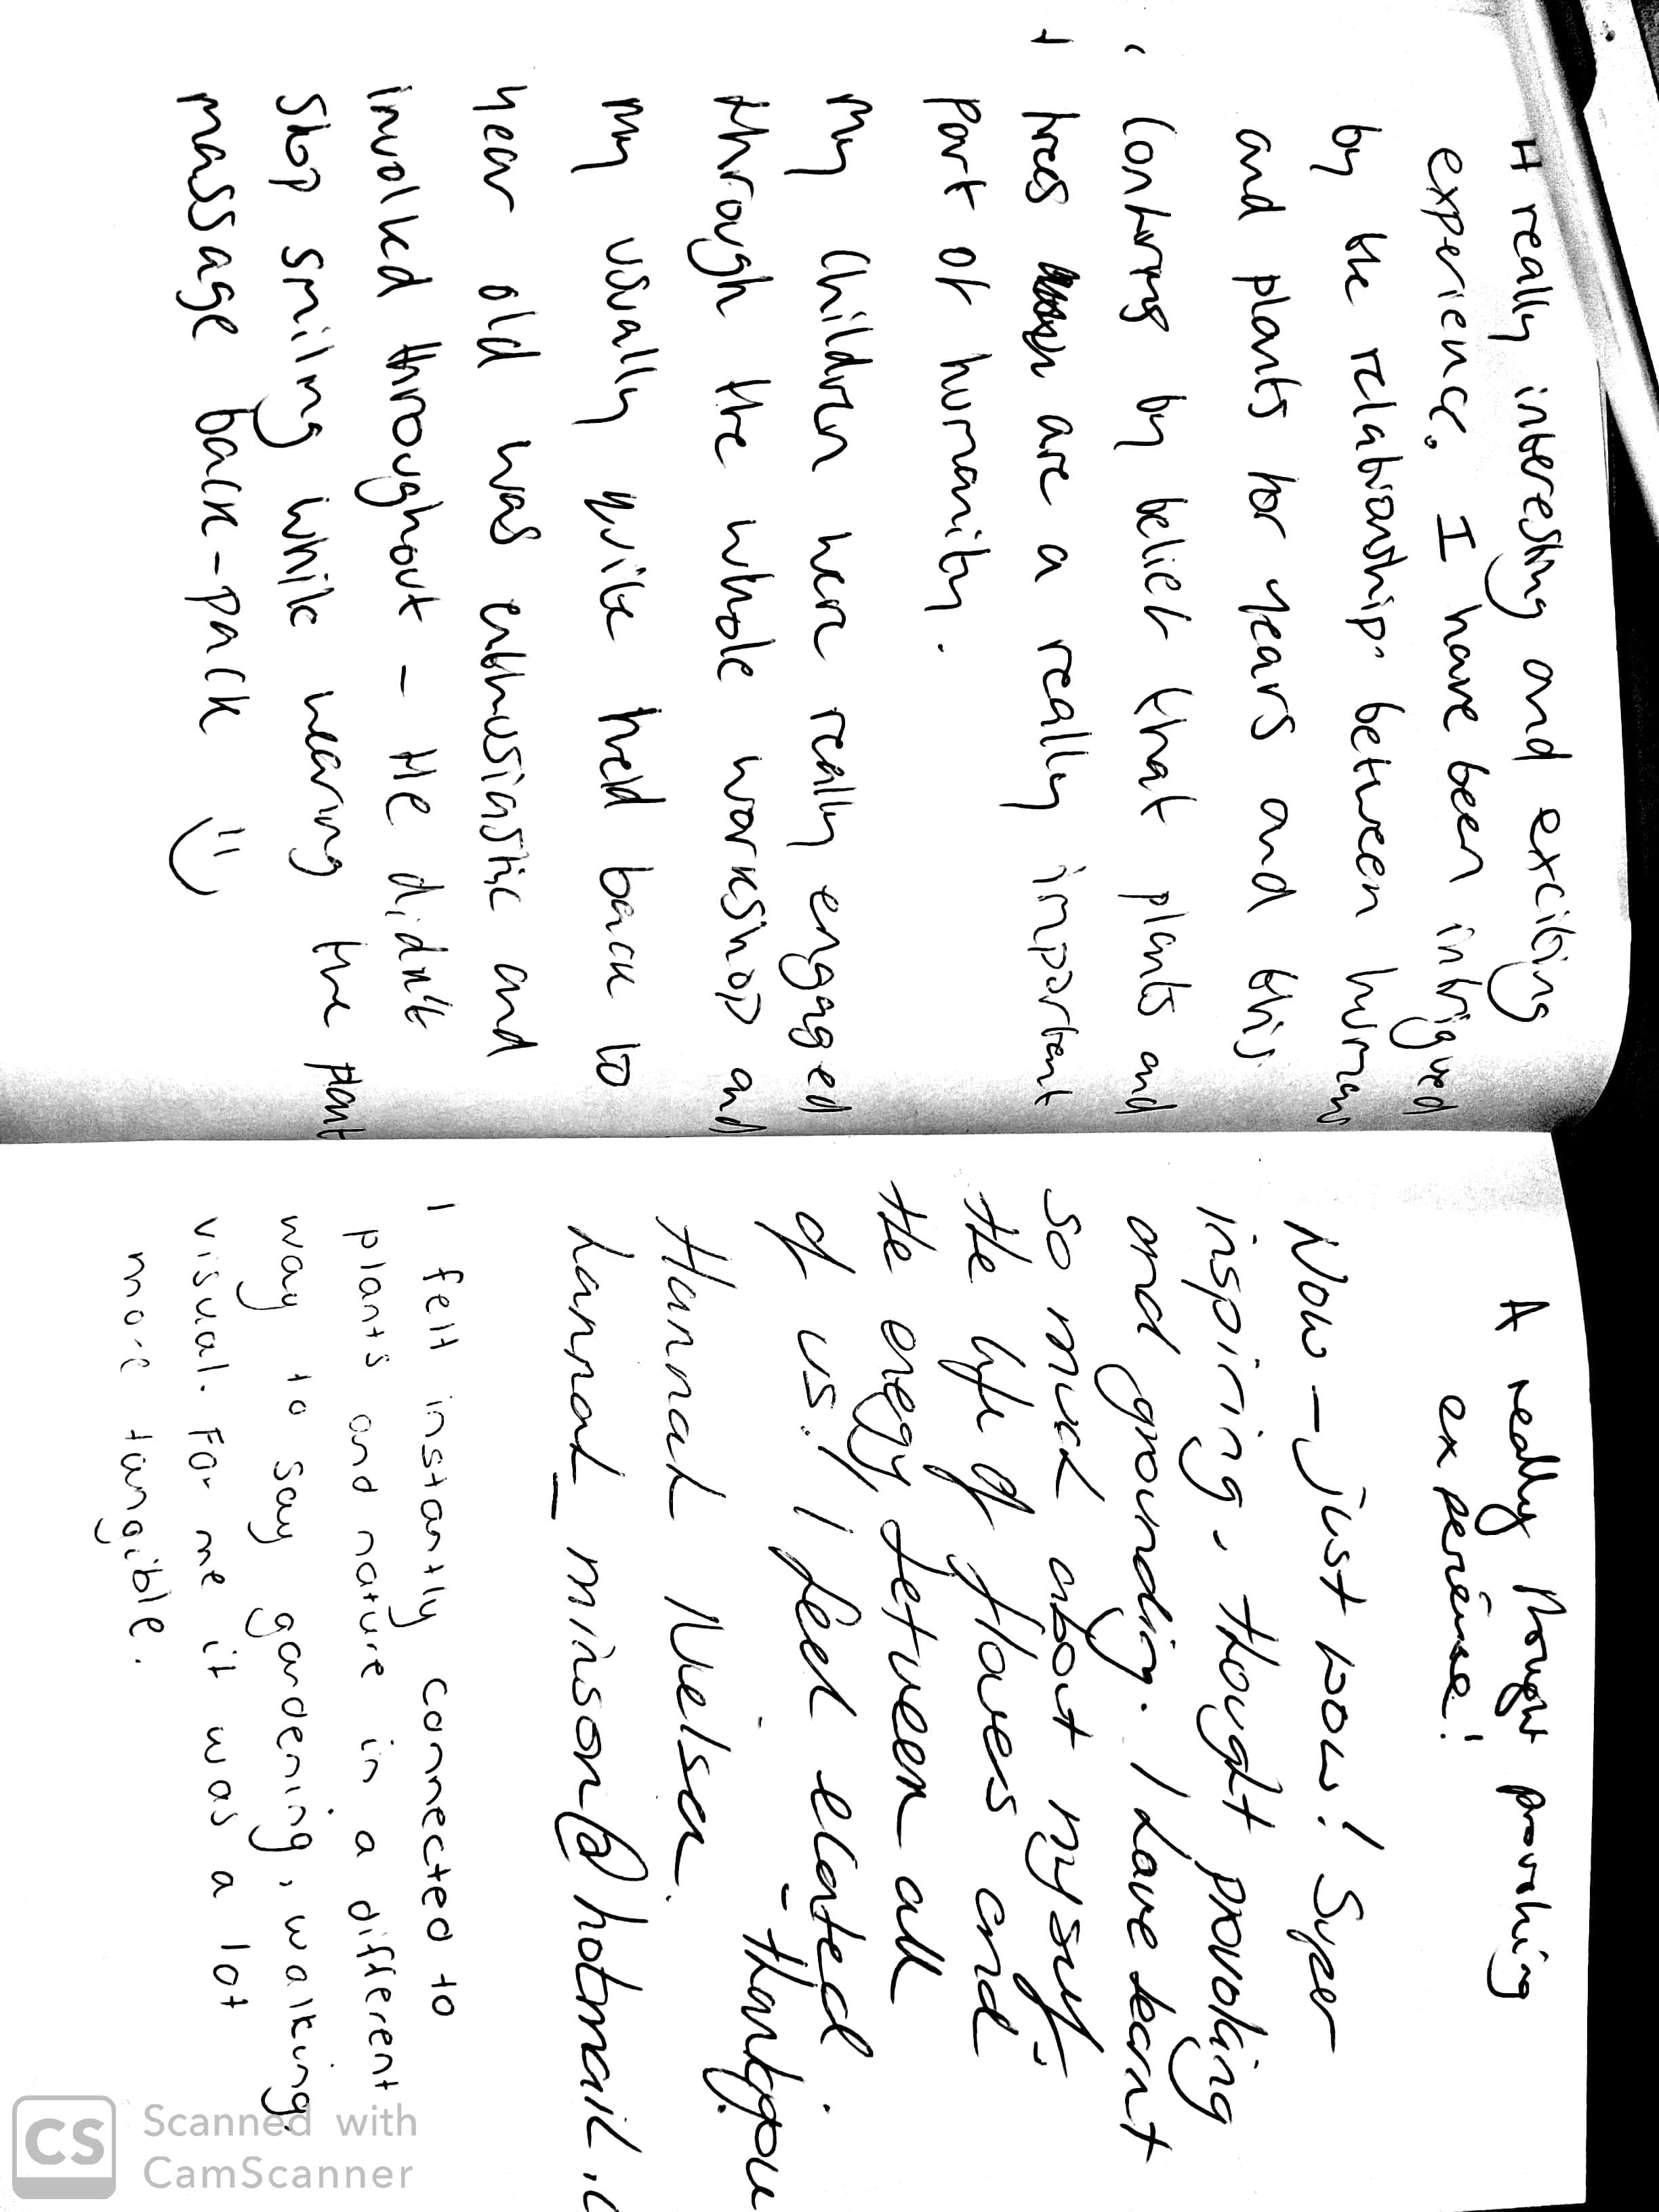 A really interesting and exciting
experience. I have been intrigued
by the relationship between humans
and plants for years and this
confirms by belief that plants and
trees are a really important
part of humanity.
My children were really engaged
through the whole workshop and
my usually quite held back 10
year old was enthusiastic and
involved throughout - He didn't
stop smiling while wearing the plant
massage back-pack
A really thought provoking
experience!
Wow - just wow! Super
inspiring, thought provoking
and grounding. I have learnt
so much about myself,
the life of flowers and
the energy between all
of us! I feel elated.
- Thankyou
Hannah Nielsen.
hannah_minson@hotmail.c
I felt instantly connected to
plants and nature in a different
way to say gardening, walking,
visual. For me it was a lot
more tangible.
Scanned with
CamScanner
CS